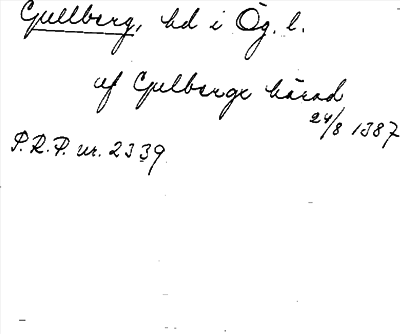 Gullberg, hd i Ög. l.
af Gulberge härad
24/8 1387
P.R.P. nr. 2339